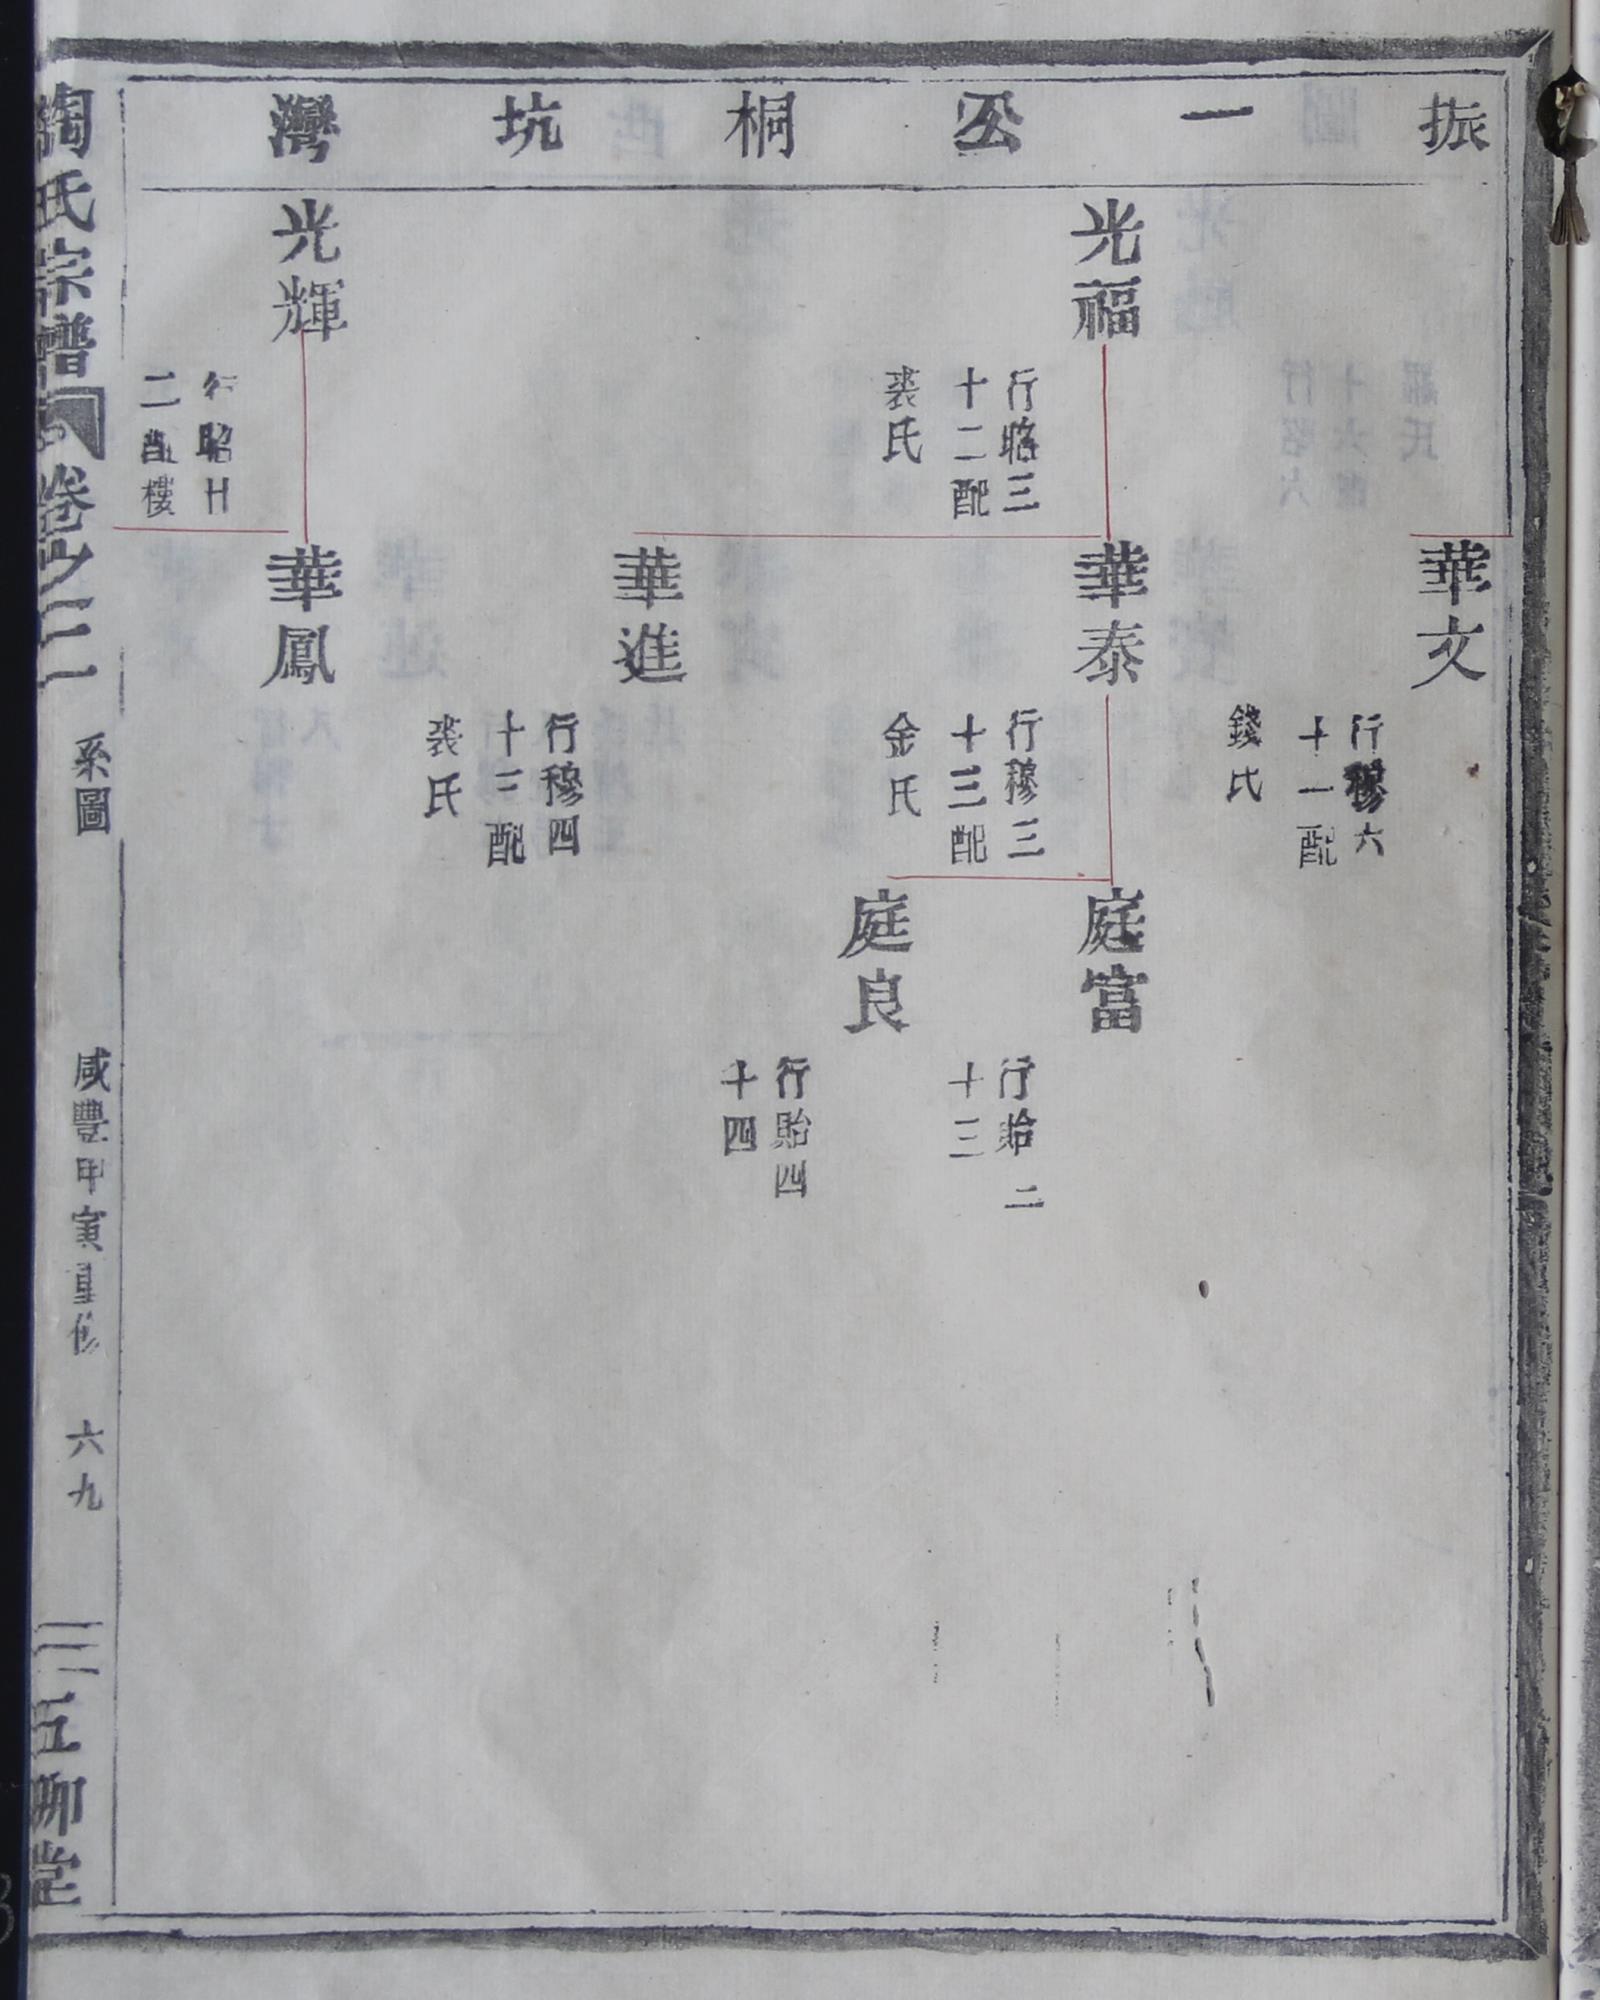 振一公桐坑灣
華文
行穆六
十一配
錢氏
光福
行昭三
十二配
裘氏
華泰
行穆三
十三配
金氏
庭富
行貽二
十三
庭良
行貽四
十四
華進
行穆四
十三配
裘氏
光輝
行昭廿
二配樓
華鳳
陶氏宗譜
卷之二
系圖
咸豐甲寅重修
六九
五柳堂